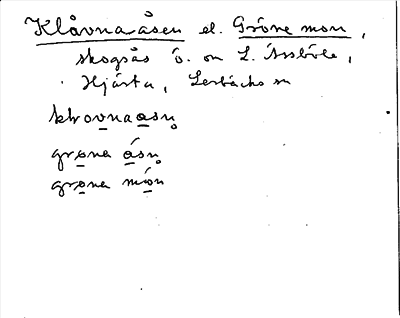 Klåvnaåsen el. Gröne mon,
skogsås ö. om L. Assböle,
Hjärta, Lerbäcks sn
klrovnaasn̥
grǫna ásn̥
grǫna mǫ́n